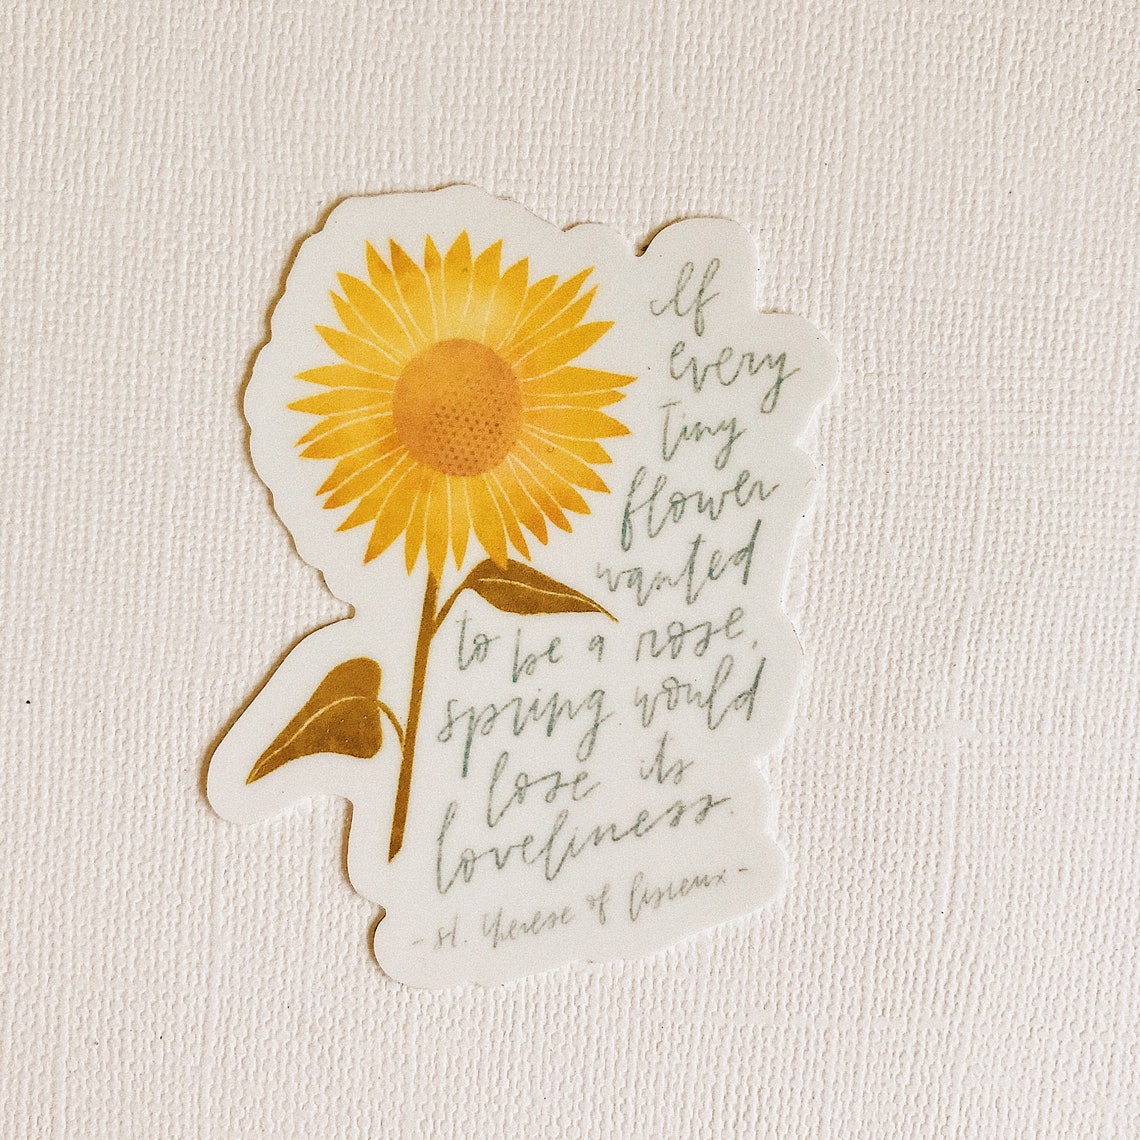 If
every
tiny
flower
wanted
to be a rose,
spring would
lose its
loveliness.
- st. therese of lisieux -